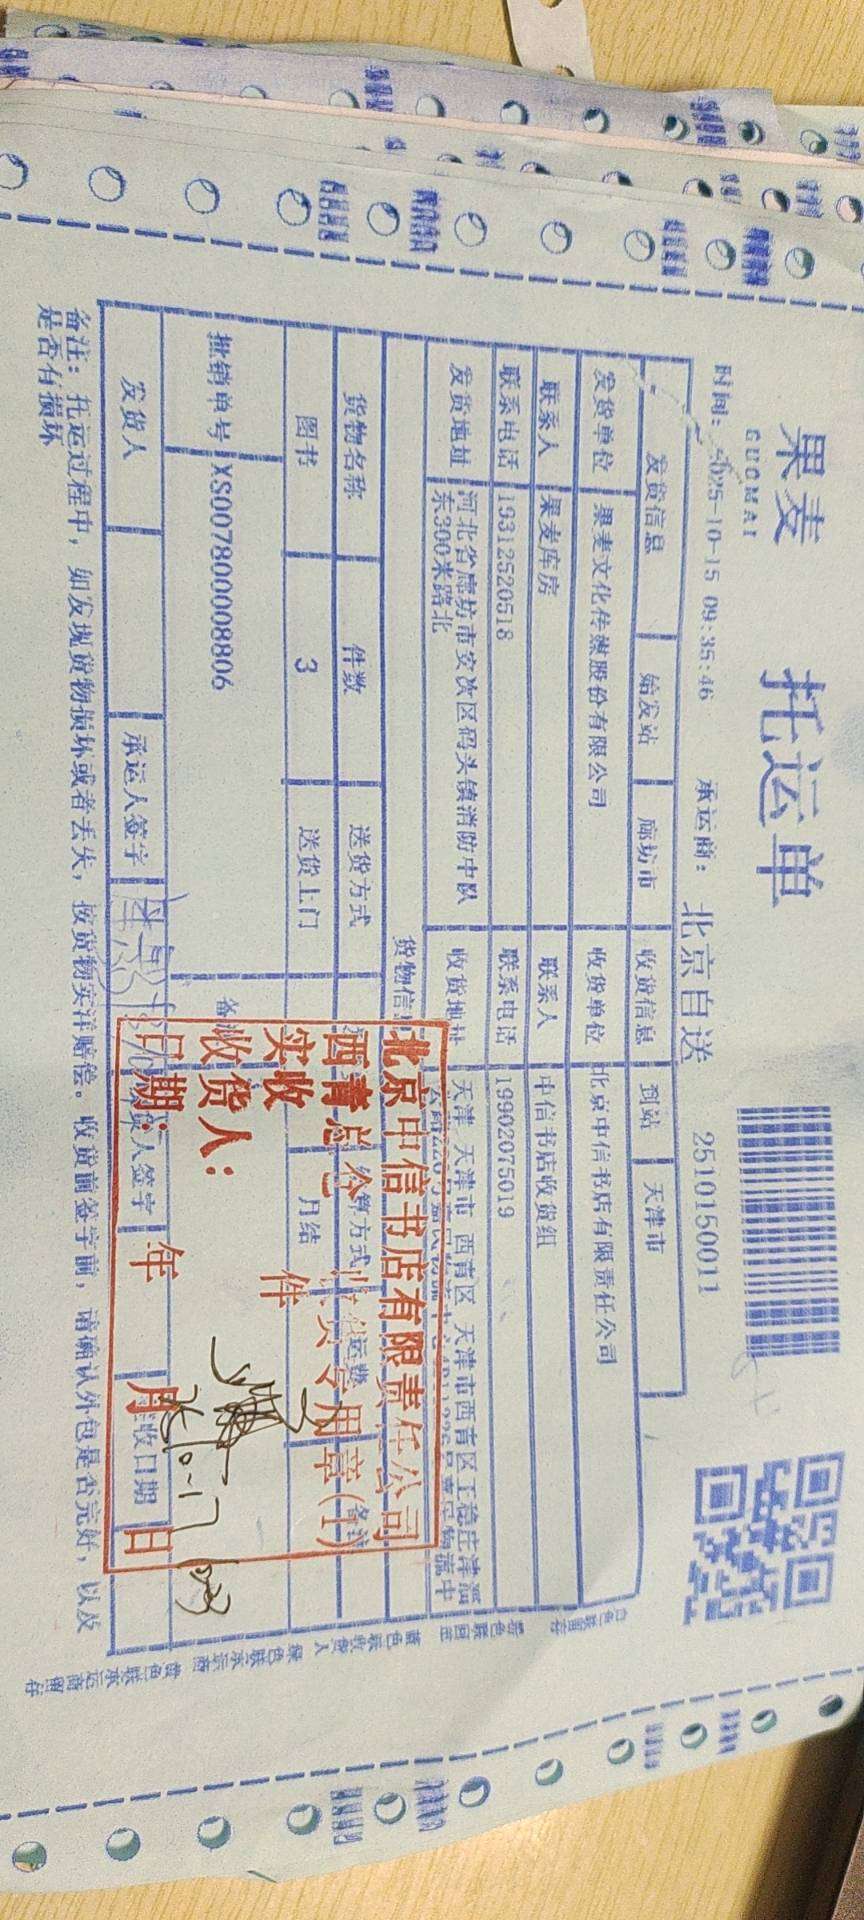 果麦
GUOMAI
托运单
时间: 2025-10-15 09:35:46 承运商: 北京自送 2510150011
发货信息 始发站 廊坊市 收货信息 到站 天津市
发货单位 果麦文化传媒股份有限公司 收货单位 北京中信书店有限责任公司
联系人 果麦库房 联系人 中信书店收货组
联系电话 19312520518 联系电话 19902075019
发货地址 河北省廊坊市安次区码头镇消防中队东300米路北 收货地址 天津 天津市 西青区 天津市西青区王稳庄津淄
货物信息
货物名称 件数 送货方式 结算方式 运费 备注
图书 3 送货上门 月结
批销单号 XS007800008806 备注
发货人 承运人签字 收货人签字 签收日期
备注: 托运过程中, 如发现货物损坏或者丢失, 按货物实洋赔偿。收货前签字前, 请确认外包是否完好, 以及
是否有损坏
北京中信书店有限责任公司
西青总仓 收货专用章(1)
实收 件
收货人:
日期: 年 月 日
10-17
白色联留存 粉色联回签 蓝色联收货人 绿色联承运商 黄色联承运商留存